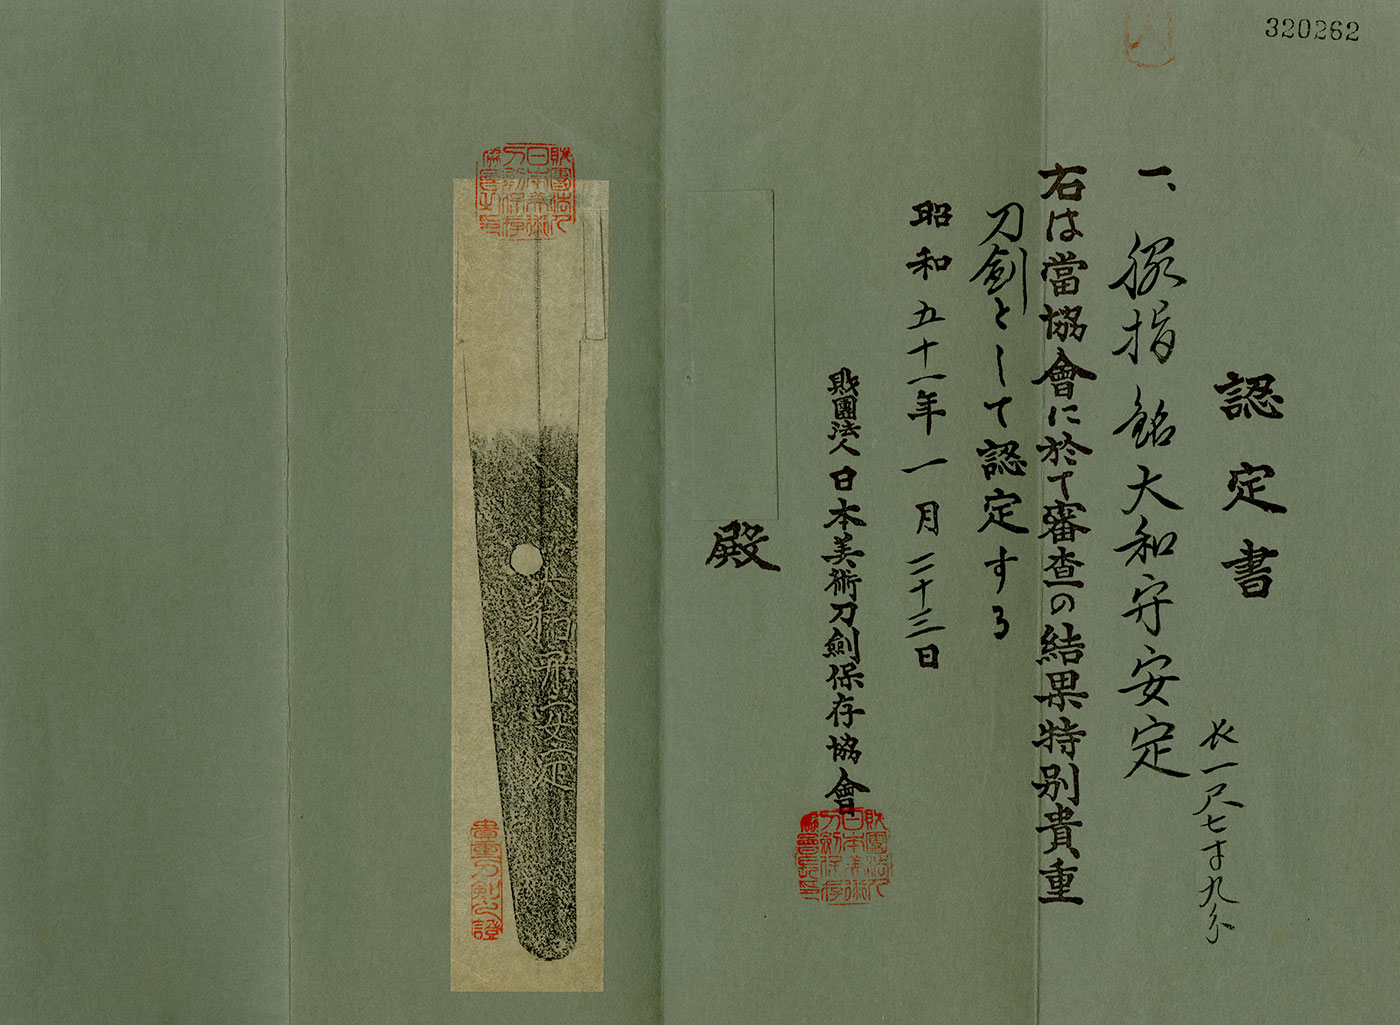 320262
認定書
一、脇指 銘大和守安定
長一尺七寸九分
右は當協會に於て審査の結果特別貴重
刀劍として認定する
昭和五十一年一月二十三日
財團法人日本美術刀劍保存協會
殿
大和守安定
財團法人日本美術刀劍保存協會之印
財團法人日本美術刀劍保存協會長印
貴重刀剣之證